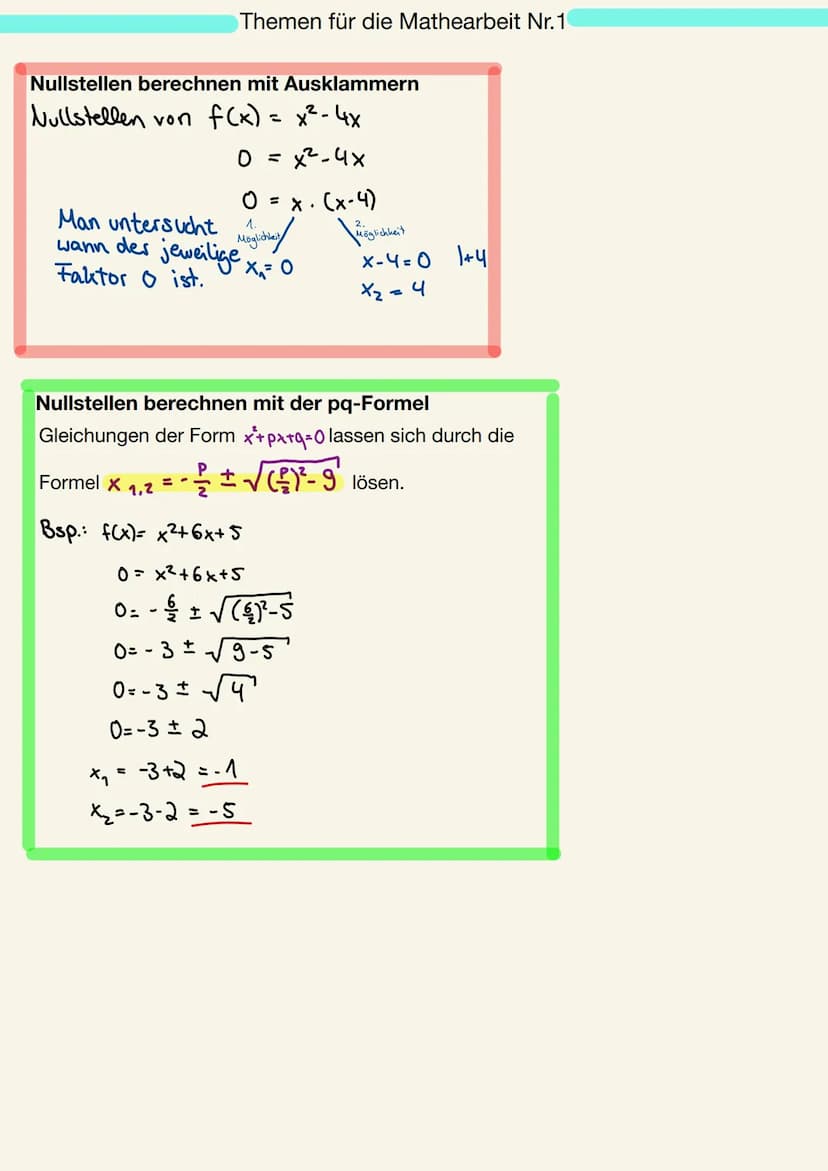 Themen für die Mathearbeit Nr.1
Nullstellen berechnen mit Ausklammern
Nullstellen von f(x) = x²-4x
0 = x²-4x
0 = x·(x-4)
Man untersucht
wann der jeweilige
Faktor 0 ist.
1.
Möglichkeit
x₁=0
2.
Möglichkeit
x-4=0 |+4
x₂ = 4
Nullstellen berechnen mit der pq-Formel
Gleichungen der Form x²+px+q=0 lassen sich durch die
Formel x 1,2 = -p/2 ± √((p/2)²-q) lösen.
Bsp.: f(x)= x²+6x+5
0 = x²+6x+5
0= -6/2 ± √((6/2)²-5)
0= -3 ± √(9-5)
0=-3 ± √4
0=-3 ± 2
x₁ = -3+2 = -1
x₂=-3-2 = -5